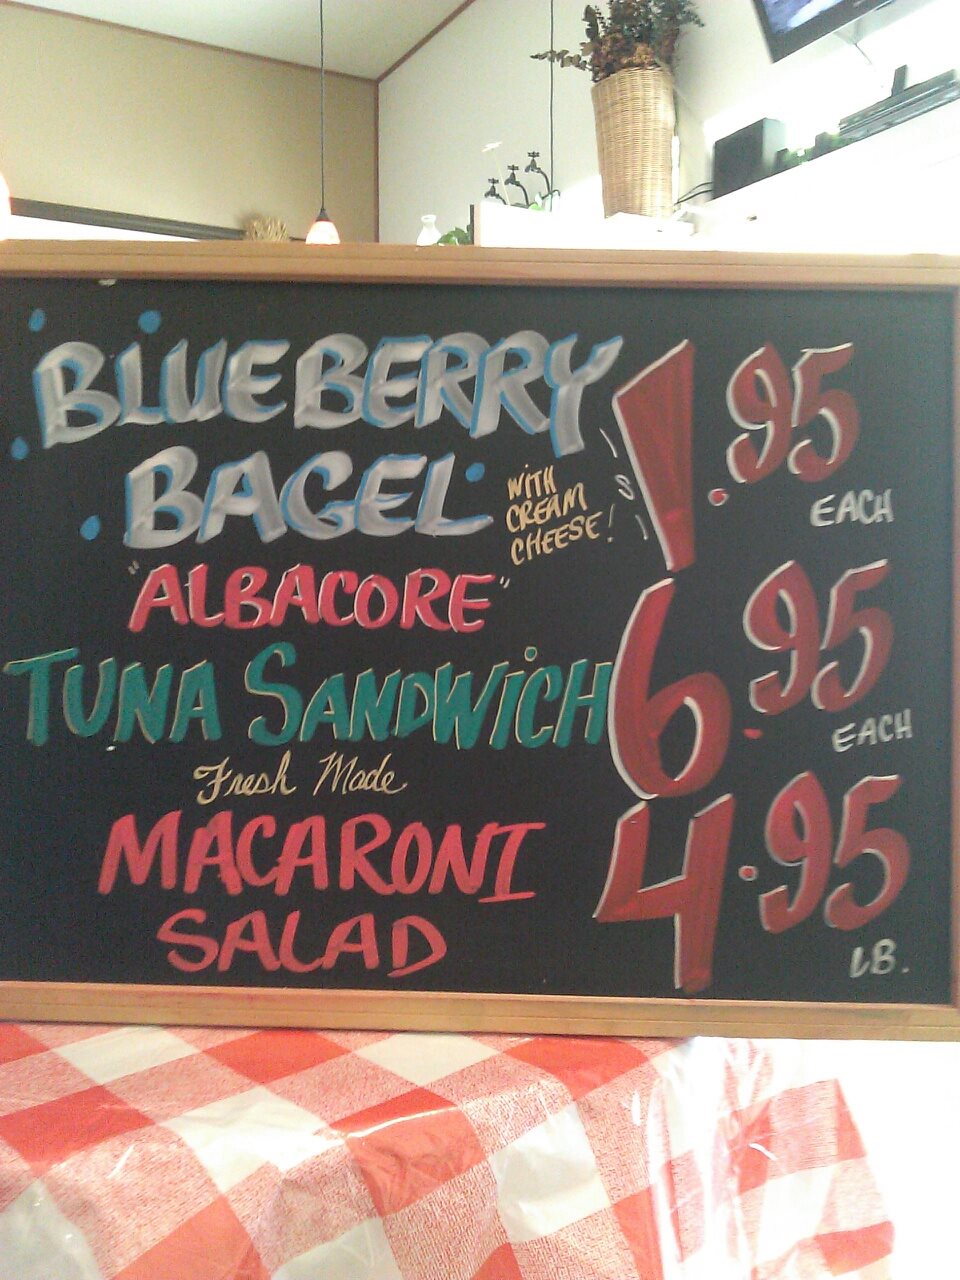 BLUEBERRY 1.95
BAGEL WITH CREAM CHEESE! EACH
"ALBACORE"
TUNA SANDWICH 6.95
EACH
Fresh Made
MACARONI 4.95
SALAD LB.